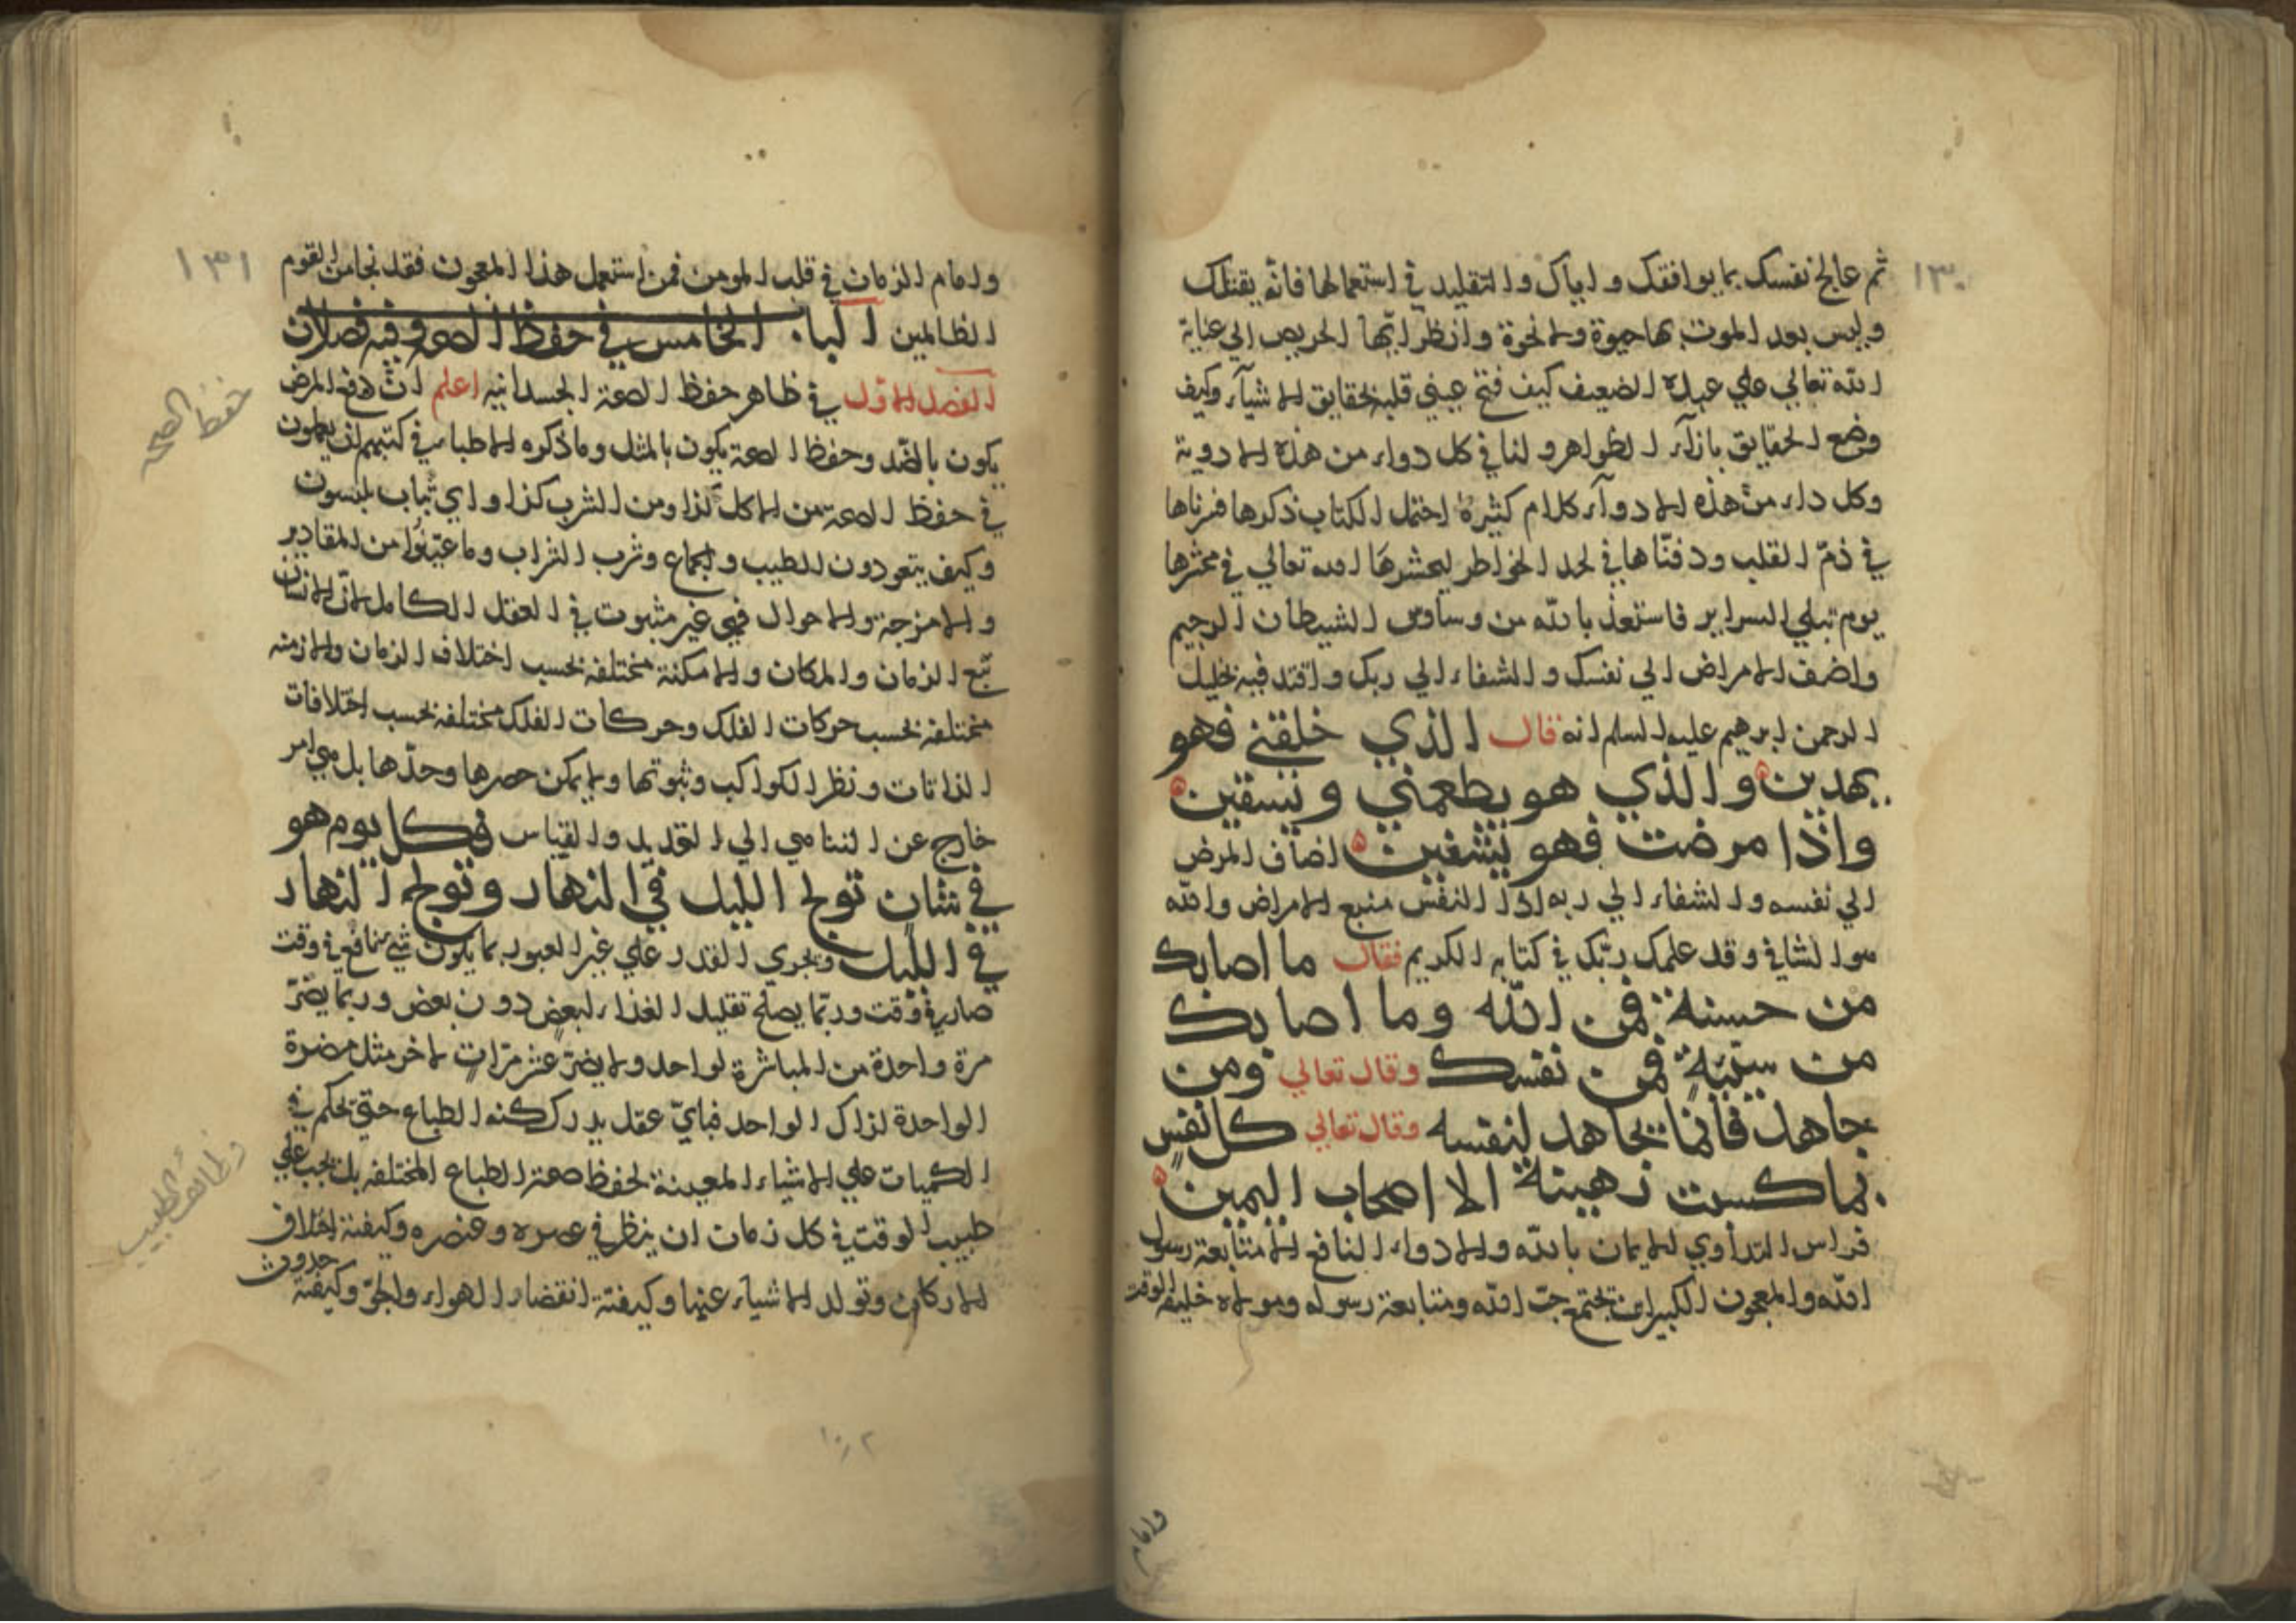 ١٣٠
ثم عالج نفسك بما يوافقك واياك والتقليد في استعمالها فانه يقتلك
وليس بعد الموت بها حيوة ولا نحرة وانظر ايها الحريص الي عناية
الله تعالي علي عبده الضعيف كيف فتح عيني قلبه بحقايق الاشيآء وكيف
وضع الحقايق بازآء الظواهر ولنا في كل دواء من هذه الادوية
وكل داء من هذه الادوآء كلام كثيرة احتمل الكتاب ذكرها
في ذمّ القلب ودفنّاها في لحد الخواطر ليحشرها الله تعالي في محشرها
يوم تبلي السراير فاستعذ بالله من وساوس الشيطان الرجيم
واضف الامراض الي نفسك والشفاء الي ربك واقتد فيه بخليل
الرحمن ابرهيم عليه السلم انه قال الذي خلقني فهو
يهدين والذي هو يطعمني ويسقين
واذا مرضت فهو يشفين اضاف المرض
الي نفسه والشفاء الي ربه اذ النفس منبع الامراض والله
هو الشافي وقد علمك ربّك في كتابه الكريم فقال ما اصابك
من حسنة فمن الله وما اصابك
من سيّئة فمن نفسك وقال تعالي ومن
جاهد فانما يجاهد لنفسه وقال تعالي كل نفس
بما كسبت رهينة الا اصحاب اليمين
فراس التداوي الايمان بالله والادواء النافع المتابعة رسول
الله والمعجون الكبير ان تجتمع حبّ الله ومتابعة رسوله وموالاه خليفة الوقت
وامام
١٣١
وامام الزمان في قلب المومن فمن استعمل هذا المعجون فقد نجا من القوم
الظالمين الباب الخامس في حفظ الصحة وفيه فصلان
الفصل الاول في ظاهر حفظ الصحة الجسدانيه اعلم انّ دفع المرض
يكون بالضّد وحفظ الصحة يكون بالمثل وما ذكره الاطباء في كتبهم
في حفظ الصحة من الاكل كذا ومن الشرب كذا واي ثياب يلبسون
وكيف يتعودون للطيب والجماع وشرب الشراب وما عيّنوا من المقادير
والامزجة والاحوال فهي غير مثبوت في العقل الكامل لانّ الانسان
تبع الزمان والمكان والامكنة مختلفه بحسب اختلاف الزمان والازمنه
مختلفه بحسب حركات الفلك وحركات الفلك مختلفه بحسب اختلافات
الذاتات ونظر الكواكب وثبوتها ولا يمكن حصرها وحدّها بل هي امر
خارج عن التناهي الي التحديد والقياس فكل يوم هو
في شان تولج الليل في النهار وتولج النهار
في الليل ويجري القدر علي غير العبور بما يكون شيء نافع في وقت
ضار في وقت وربّما يصلح تقليل الغذاء لبعض دون بعض وربما يضرّ
مرة واحدة من المباشرة لواحد ولا يضرّ عشر مرّات لاخر مثل مضرة
الواحدة لذاك الواحد فبايّ عقل يدرك كنه الطباع حتي تحكم في
الكميات علي الاشياء المعينة لحفظ صحة الطباع المختلفه بل يجب علي
طبيب الوقت في كل زمان ان ينظر في عصره وعنصره وكيفية اختلاف
الاركان وتولد الاشيآء عنها وكيفية انقضاء الهواء والجوّ وكيفية حدوث
حفظ الصحة
وظائف الطبيب
١٠٢